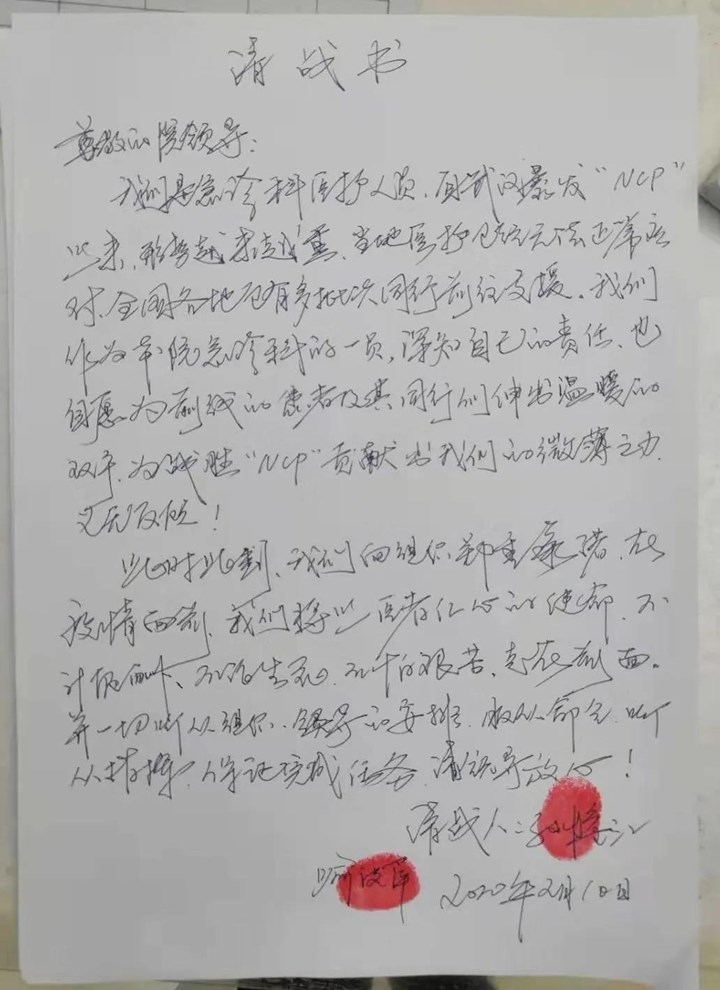 请战书
尊敬的院领导：
我们是急诊科医护人员，自武汉爆发“NCP”
以来，形势越来越重，当地医护已经无法正常应
对，全国各地已有多批次同行前往支援。我们
作为本院急诊科的一员，深知自己的责任，也
自愿为前线的患者及其同行们伸出温暖的
双手，为战胜“NCP”贡献出我们的微薄之力，
义无反顾！
此时此刻，我们向组织郑重承诺，在
疫情面前，我们将以医者仁心的使命，不
计报酬、不论生死、不怕艰苦、走在前面。
并一切听从组织、领导的安排，服从命令，听
从指挥，保证完成任务，请领导放心！
请战人：
2020年2月10日